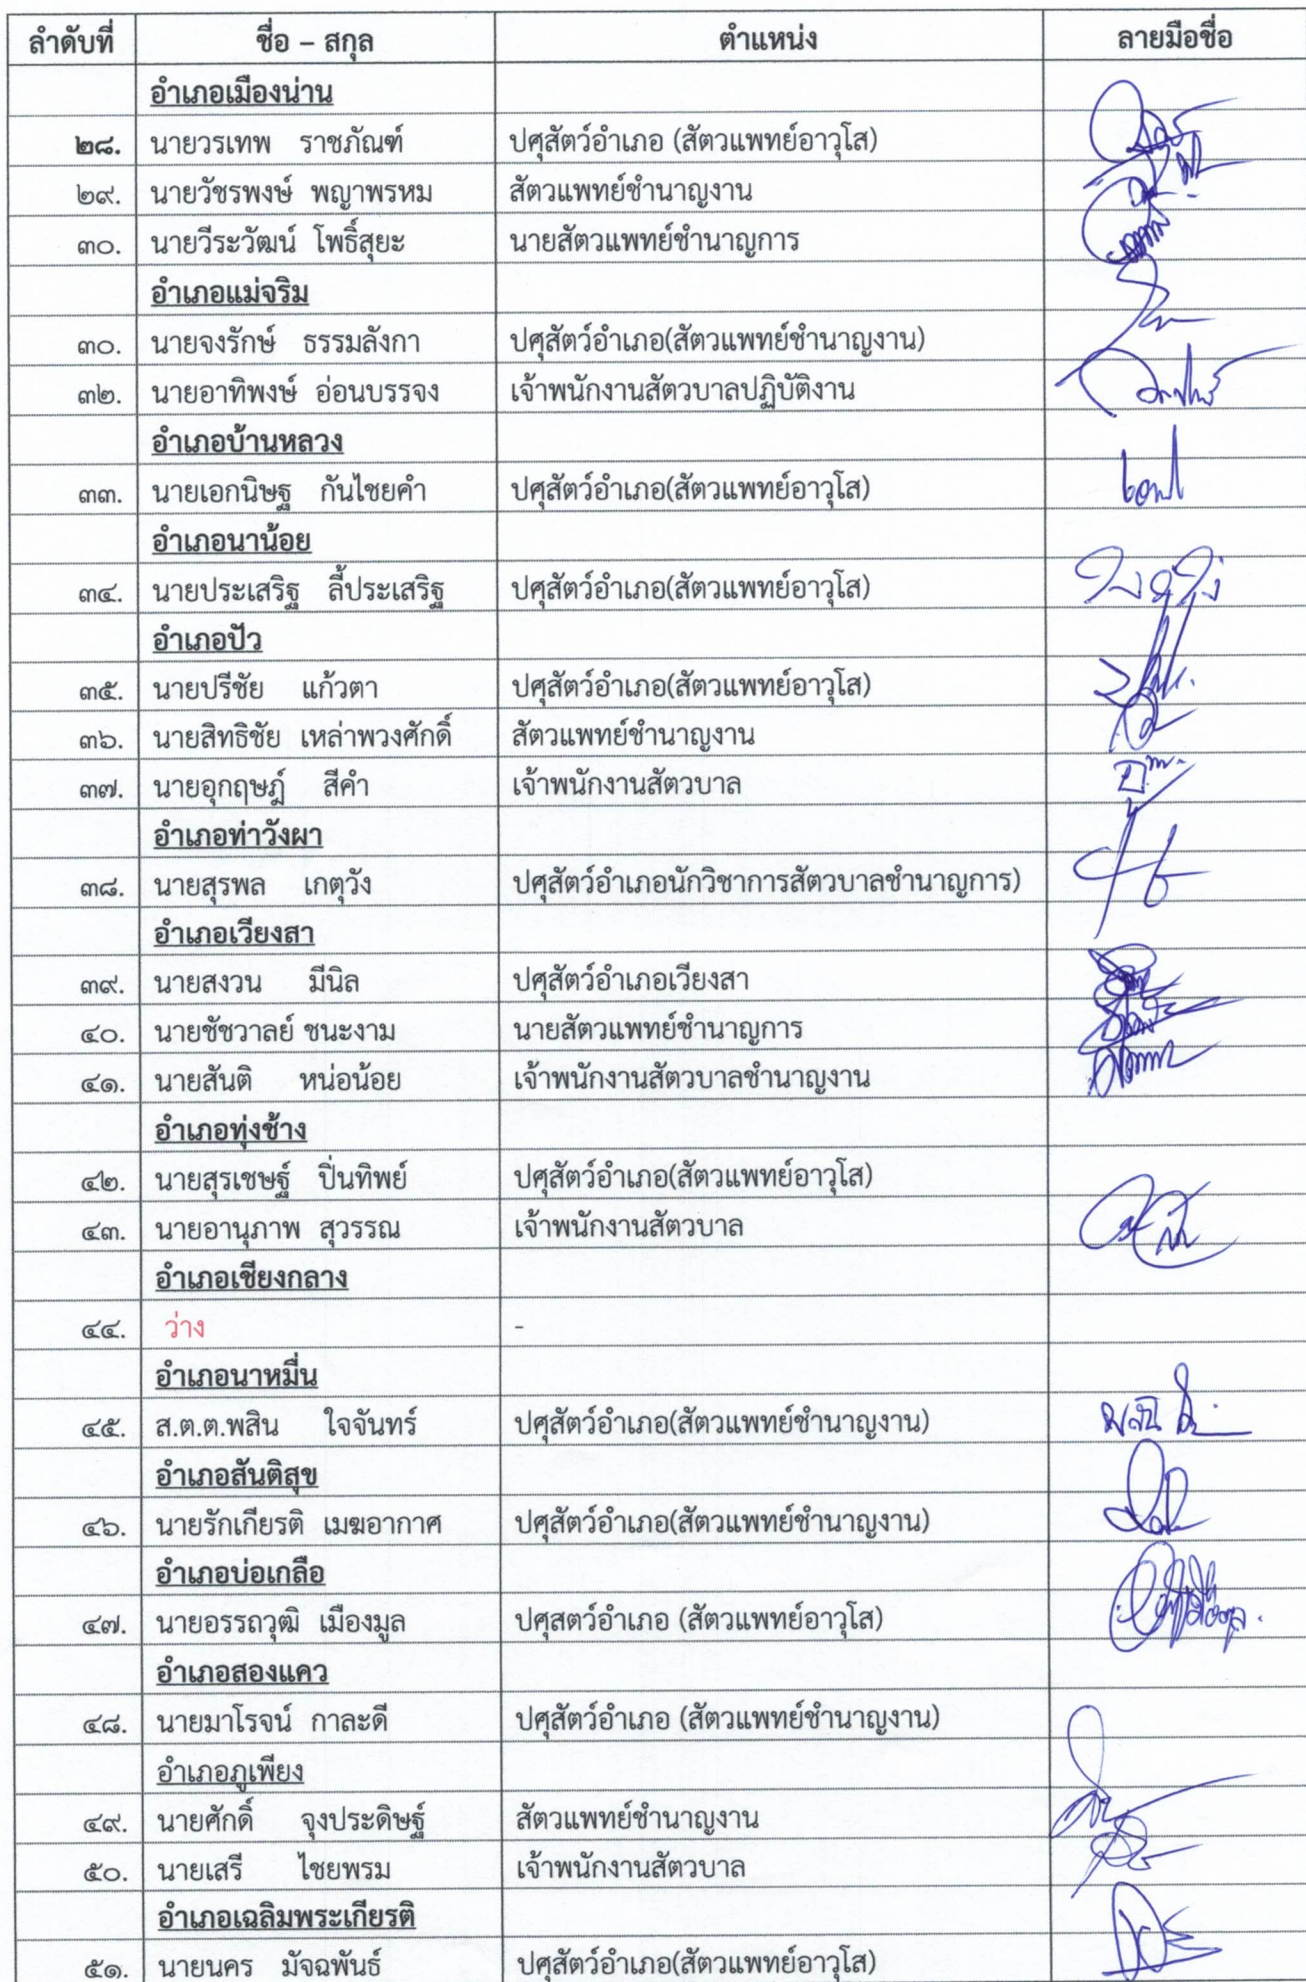 ลำดับที่ ชื่อ – สกุล ตำแหน่ง ลายมือชื่อ
อำเภอเมืองน่าน
๒๘. นายวรเทพ ราชภัณฑ์ ปศุสัตว์อำเภอ (สัตวแพทย์อาวุโส)
๒๙. นายวัชรพงษ์ พญาพรหม สัตวแพทย์ชำนาญงาน
๓๐. นายวีระวัฒน์ โพธิ์สุยะ นายสัตวแพทย์ชำนาญการ
อำเภอแม่จริม
๓๐. นายจงรักษ์ ธรรมลังกา ปศุสัตว์อำเภอ(สัตวแพทย์ชำนาญงาน)
๓๒. นายอาทิพงษ์ อ่อนบรรจง เจ้าพนักงานสัตวบาลปฏิบัติงาน
อำเภอบ้านหลวง
๓๓. นายเอกนิษฐ กันไชยคำ ปศุสัตว์อำเภอ(สัตวแพทย์อาวุโส)
อำเภอนาน้อย
๓๔. นายประเสริฐ ลี้ประเสริฐ ปศุสัตว์อำเภอ(สัตวแพทย์อาวุโส)
อำเภอปัว
๓๕. นายปรีชัย แก้วตา ปศุสัตว์อำเภอ(สัตวแพทย์อาวุโส)
๓๖. นายสิทธิชัย เหล่าพวงศักดิ์ สัตวแพทย์ชำนาญงาน
๓๗. นายอุกฤษฎ์ สีคำ เจ้าพนักงานสัตวบาล
อำเภอท่าวังผา
๓๘. นายสุรพล เกตุวัง ปศุสัตว์อำเภอนักวิชาการสัตวบาลชำนาญการ)
อำเภอเวียงสา
๓๙. นายสงวน มีนิล ปศุสัตว์อำเภอเวียงสา
๔๐. นายชัชวาลย์ ชนะงาม นายสัตวแพทย์ชำนาญการ
๔๑. นายสันติ หน่อน้อย เจ้าพนักงานสัตวบาลชำนาญงาน
อำเภอทุ่งช้าง
๔๒. นายสุรเชษฐ์ ปิ่นทิพย์ ปศุสัตว์อำเภอ(สัตวแพทย์อาวุโส)
๔๓. นายอานุภาพ สุวรรณ เจ้าพนักงานสัตวบาล
อำเภอเชียงกลาง
๔๔. ว่าง -
อำเภอนาหมื่น
๔๕. ส.ต.ต.พสิน ใจจันทร์ ปศุสัตว์อำเภอ(สัตวแพทย์ชำนาญงาน)
อำเภอสันติสุข
๔๖. นายรักเกียรติ เมฆอากาศ ปศุสัตว์อำเภอ(สัตวแพทย์ชำนาญงาน)
อำเภอบ่อเกลือ
๔๗. นายอรรถวุฒิ เมืองมูล ปศุสตว์อำเภอ (สัตวแพทย์อาวุโส)
อำเภอสองแคว
๔๘. นายมาโรจน์ กาละดี ปศุสัตว์อำเภอ (สัตวแพทย์ชำนาญงาน)
อำเภอภูเพียง
๔๙. นายศักดิ์ จุงประดิษฐ์ สัตวแพทย์ชำนาญงาน
๕๐. นายเสรี ไชยพรม เจ้าพนักงานสัตวบาล
อำเภอเฉลิมพระเกียรติ
๕๑. นายนคร มัจฉพันธ์ ปศุสัตว์อำเภอ(สัตวแพทย์อาวุโส)